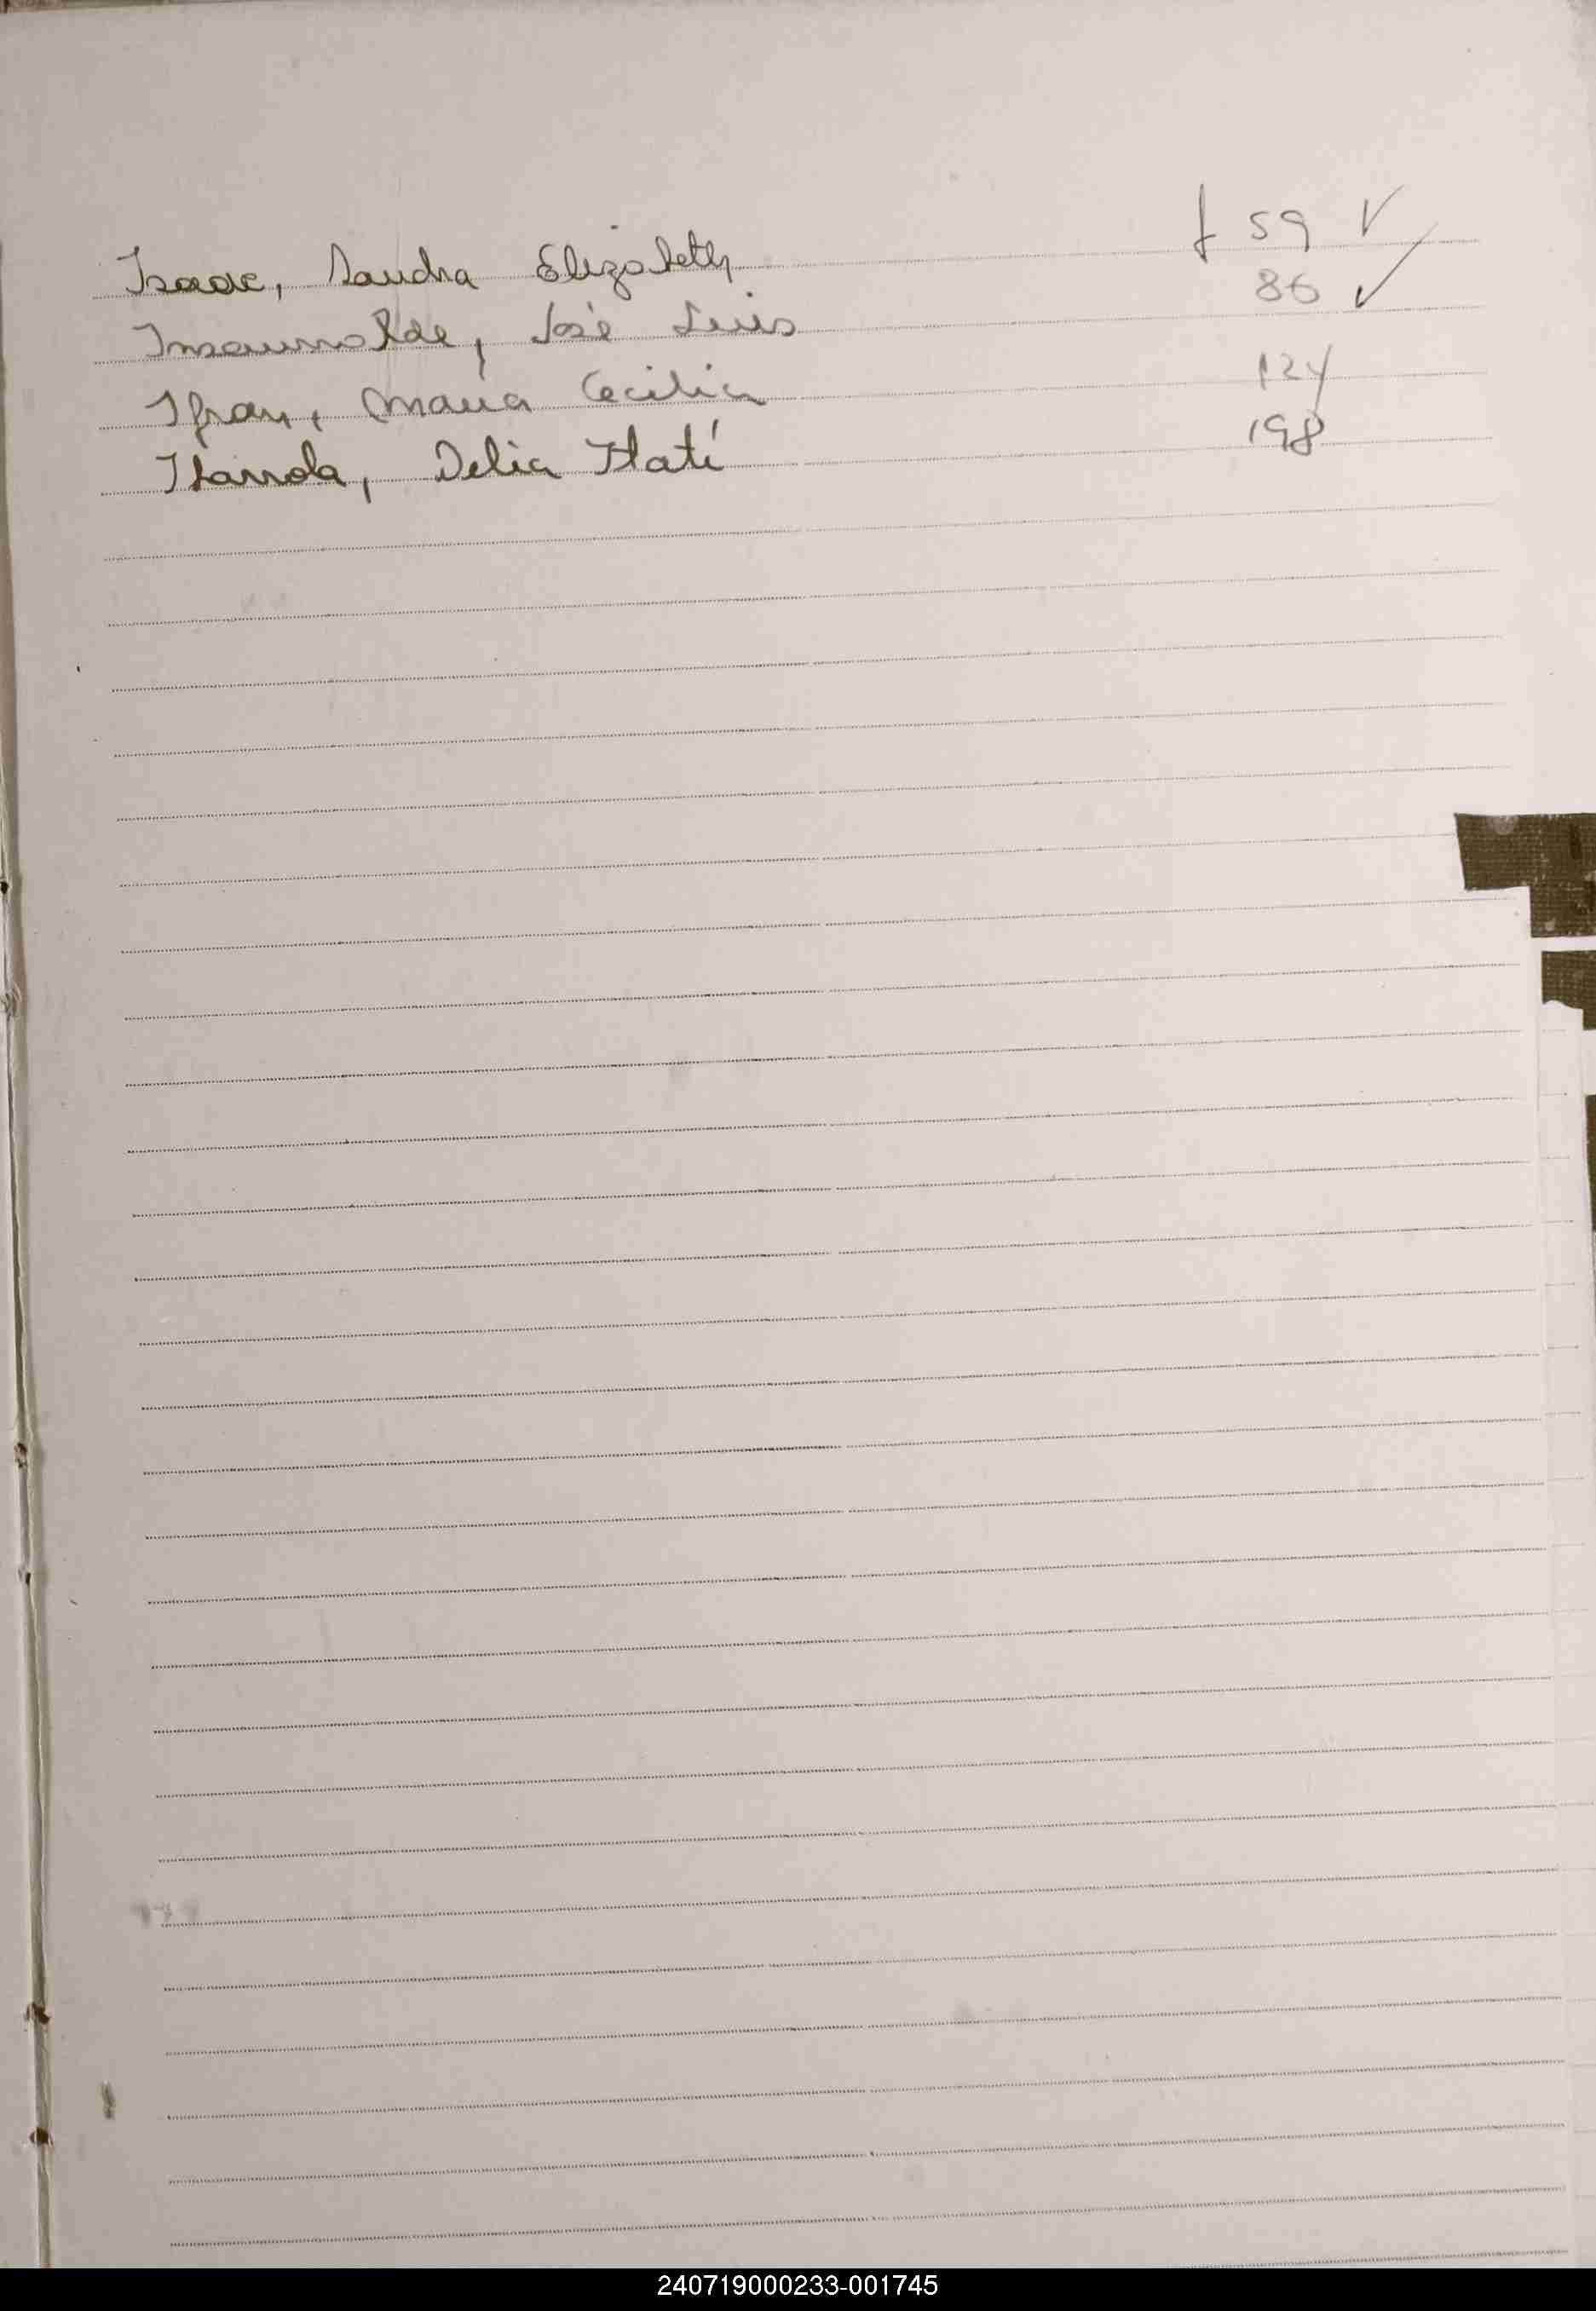 Isaac, Sandra Elizabeth f 59 ✓
Insaurralde, José Luis 86 ✓
Ifran, Maria Cecilia 124
Ibarrola, Delia Itatí 198
240719000233-001745